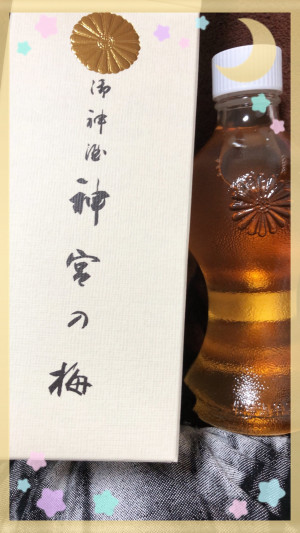 御神酒 神宮の梅